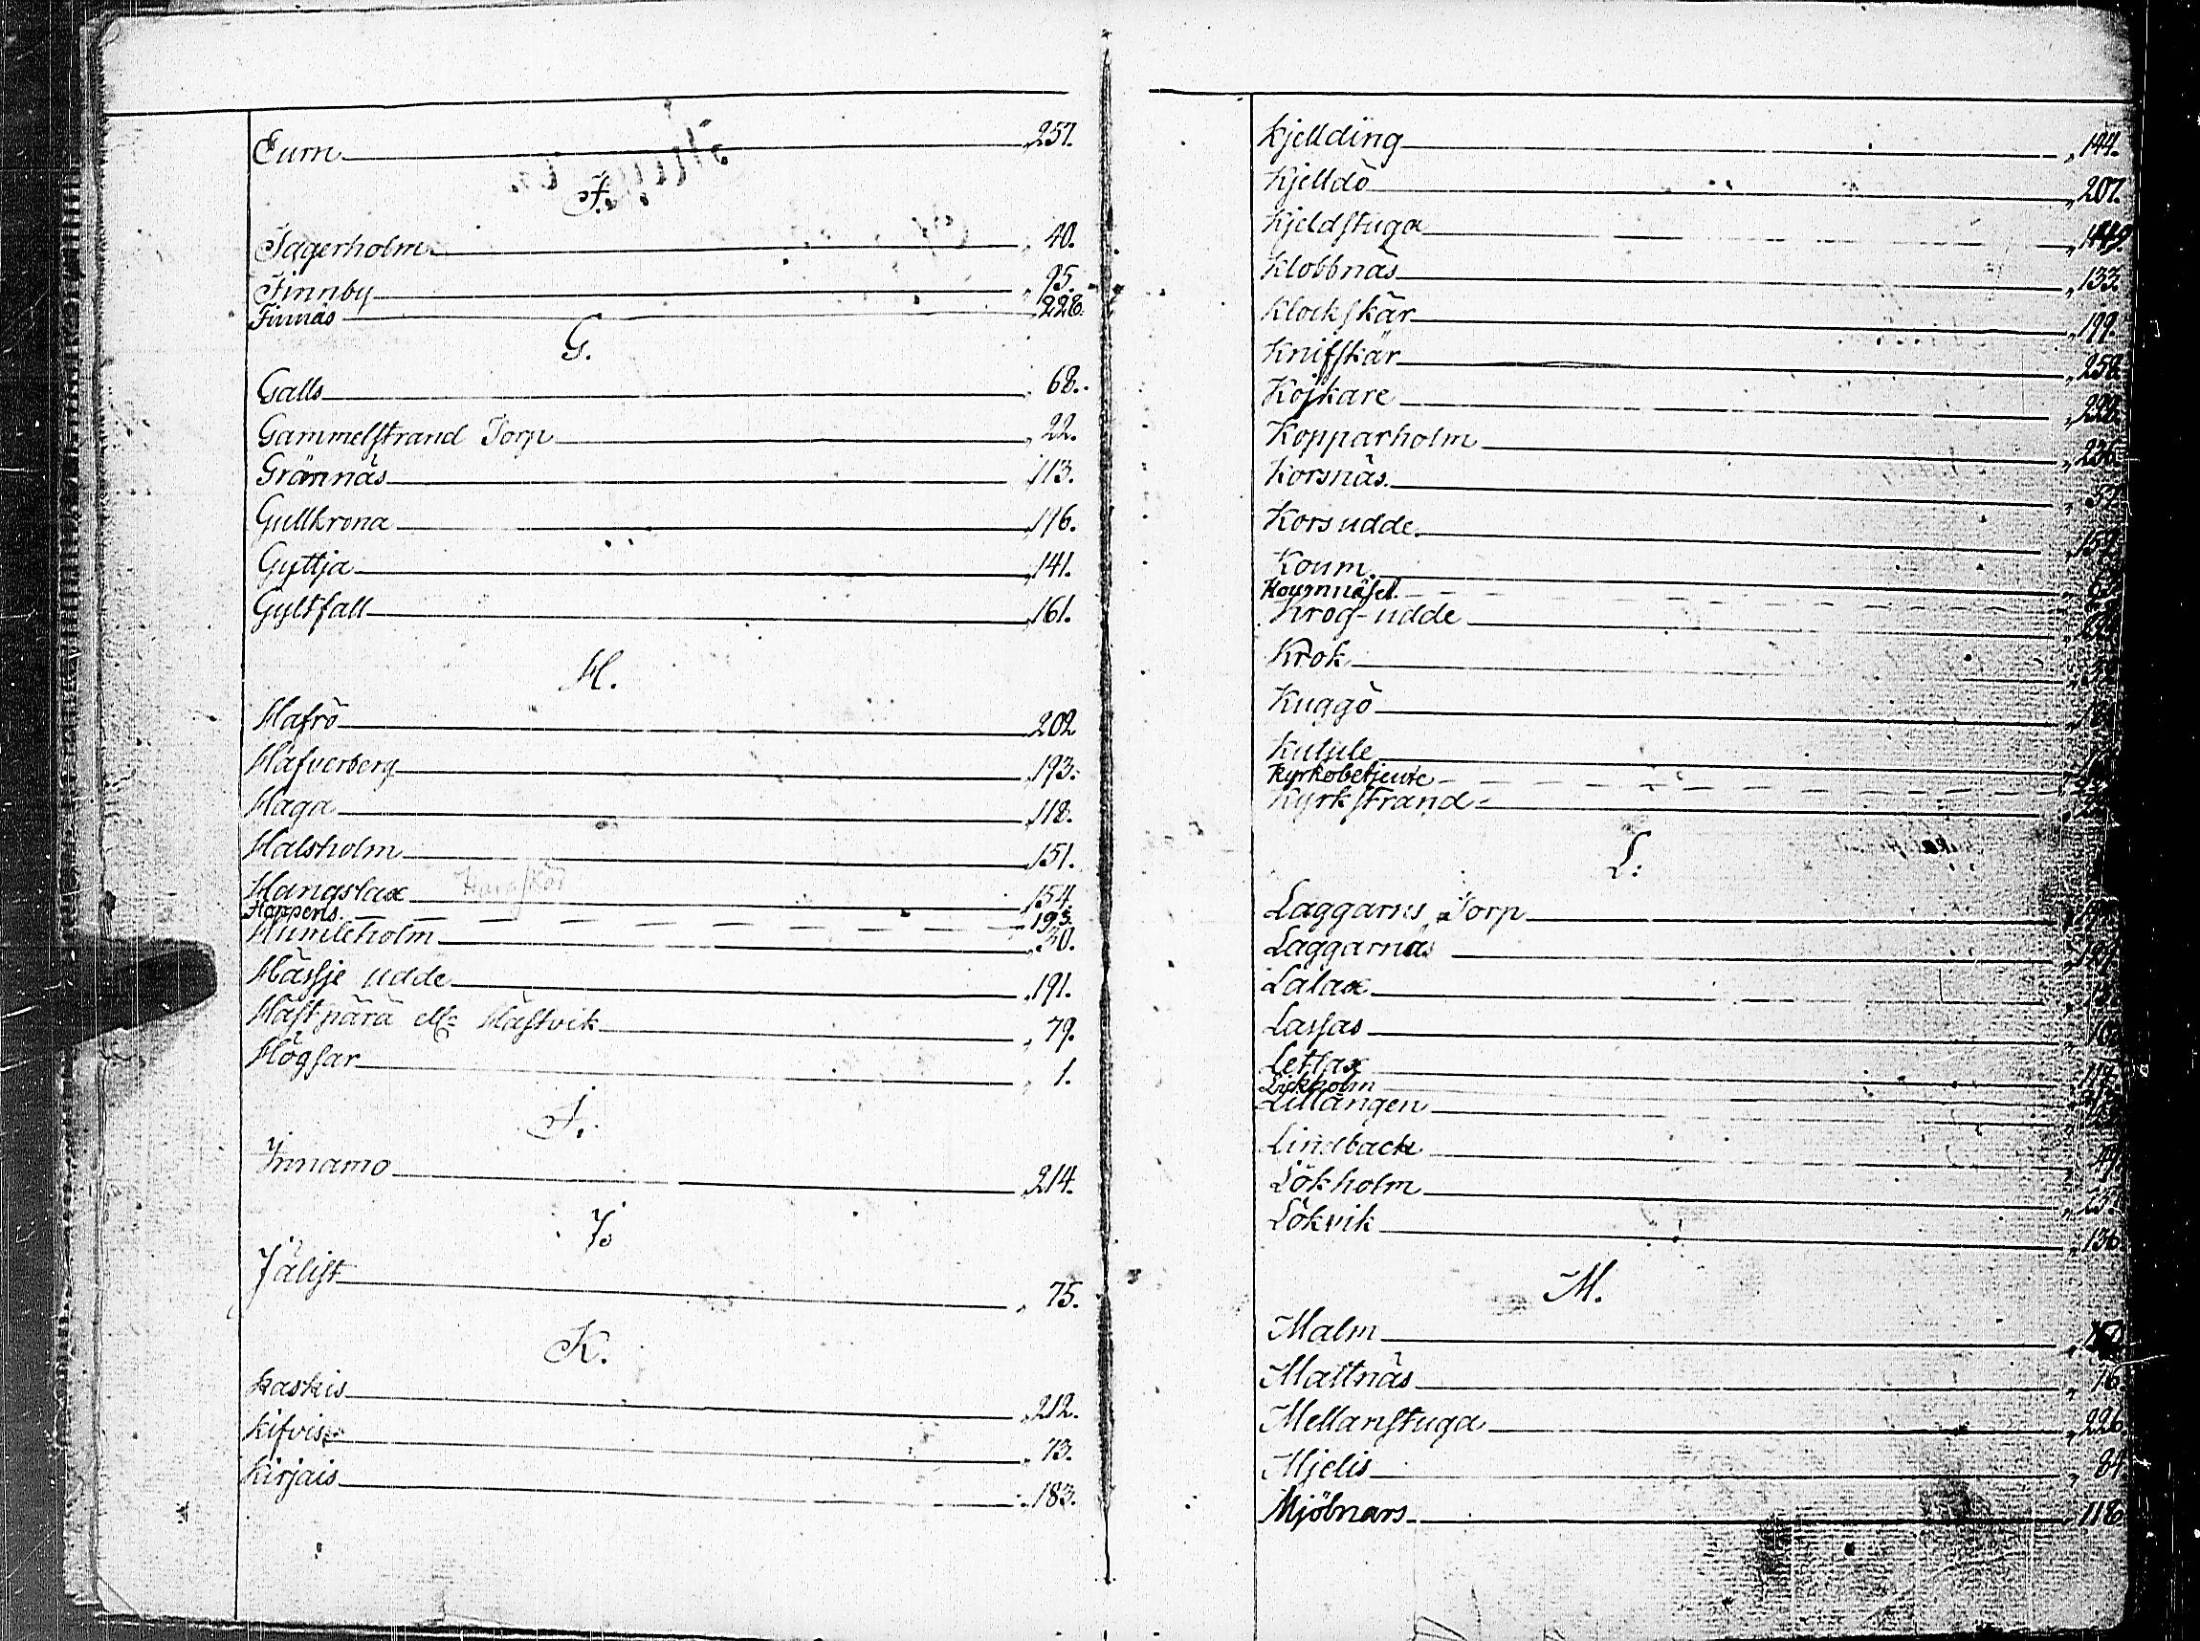 Eurn 257.
F.
Fagerholm 40.
Finnby 95.
Finnäs 228.
G.
Galls 68.
Gammelstrand Torp 22.
Grännäs 113.
Gullkrona 176.
Gyttja 141.
Gyltfall 161.
H.
Hafrö 202
Hafverberg 193.
Haga 118.
Halsholm 151.
Hangslax 154.
Hopperls 193.
Humleholm 50.
Hässje udde 191.
Hästpärä ell: Hästvik 79.
Högsar 1.
I.
Innamo 214.
J.
Jälist 75.
K.
Kaskis 212.
Kifvis 73.
Kirjais 183.
Kjellding 144.
Kjelldö 207.
Kjeldstuga
Klobbnäs 133.
Klockskär 199.
Knifskär 258.
Kojkare
Kopparholm 236.
Korsnäs 57.
Korsudde 159.
Koum
Koumnäset
Krog-udde
Krok
Kuggö
Kuljule
Kyrkobetjente
Kyrkstrand
L.
Laggarns Torp
Laggarnäs
Lalax
Lassas
Letlax 114.
Lickholm
Lillängen
Lindback
Lökholm
Lökvik 136.
M.
Malm
Mattnäs 76.
Mellanstuga 226
Mjelis 84
Mjöbnars 118